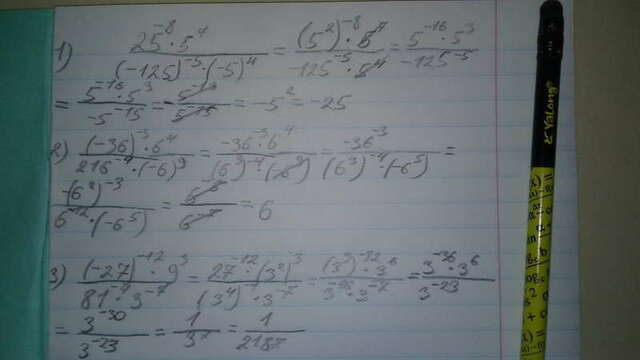 1) (25^-8 · 5^7)/((-125)^-5 · (-5)^4) = ((5^2)^-8 · 5^7)/(-125^-5 · 5^4) = (5^-16 · 5^3)/(-125^-5)
= (5^-16 · 5^3)/(-5^-15) = = -5^2 = -25
2) ((-36)^-3 · 6^4)/(216^-4 · (-6)^9) = (-36^-3 · 6^4)/((6^3)^-4 · (-6^9)) = (-36^-3)/((6^3)^-4 · (-6^5)) =
(-(6^2)^-3)/(6^-12 · (-6^5)) = = 6
3) ((-27)^-12 · 9^3)/(81^-4 · 3^-7) = (27^-12 · (3^2)^3)/((3^4)^-4 · 3^-7) = ((3^3)^-12 · 3^6)/(3^-16 · 3^-7) = (3^-36 · 3^6)/(3^-23)
= (3^-30)/(3^-23) = 1/(3^7) = 1/2187
Yalong